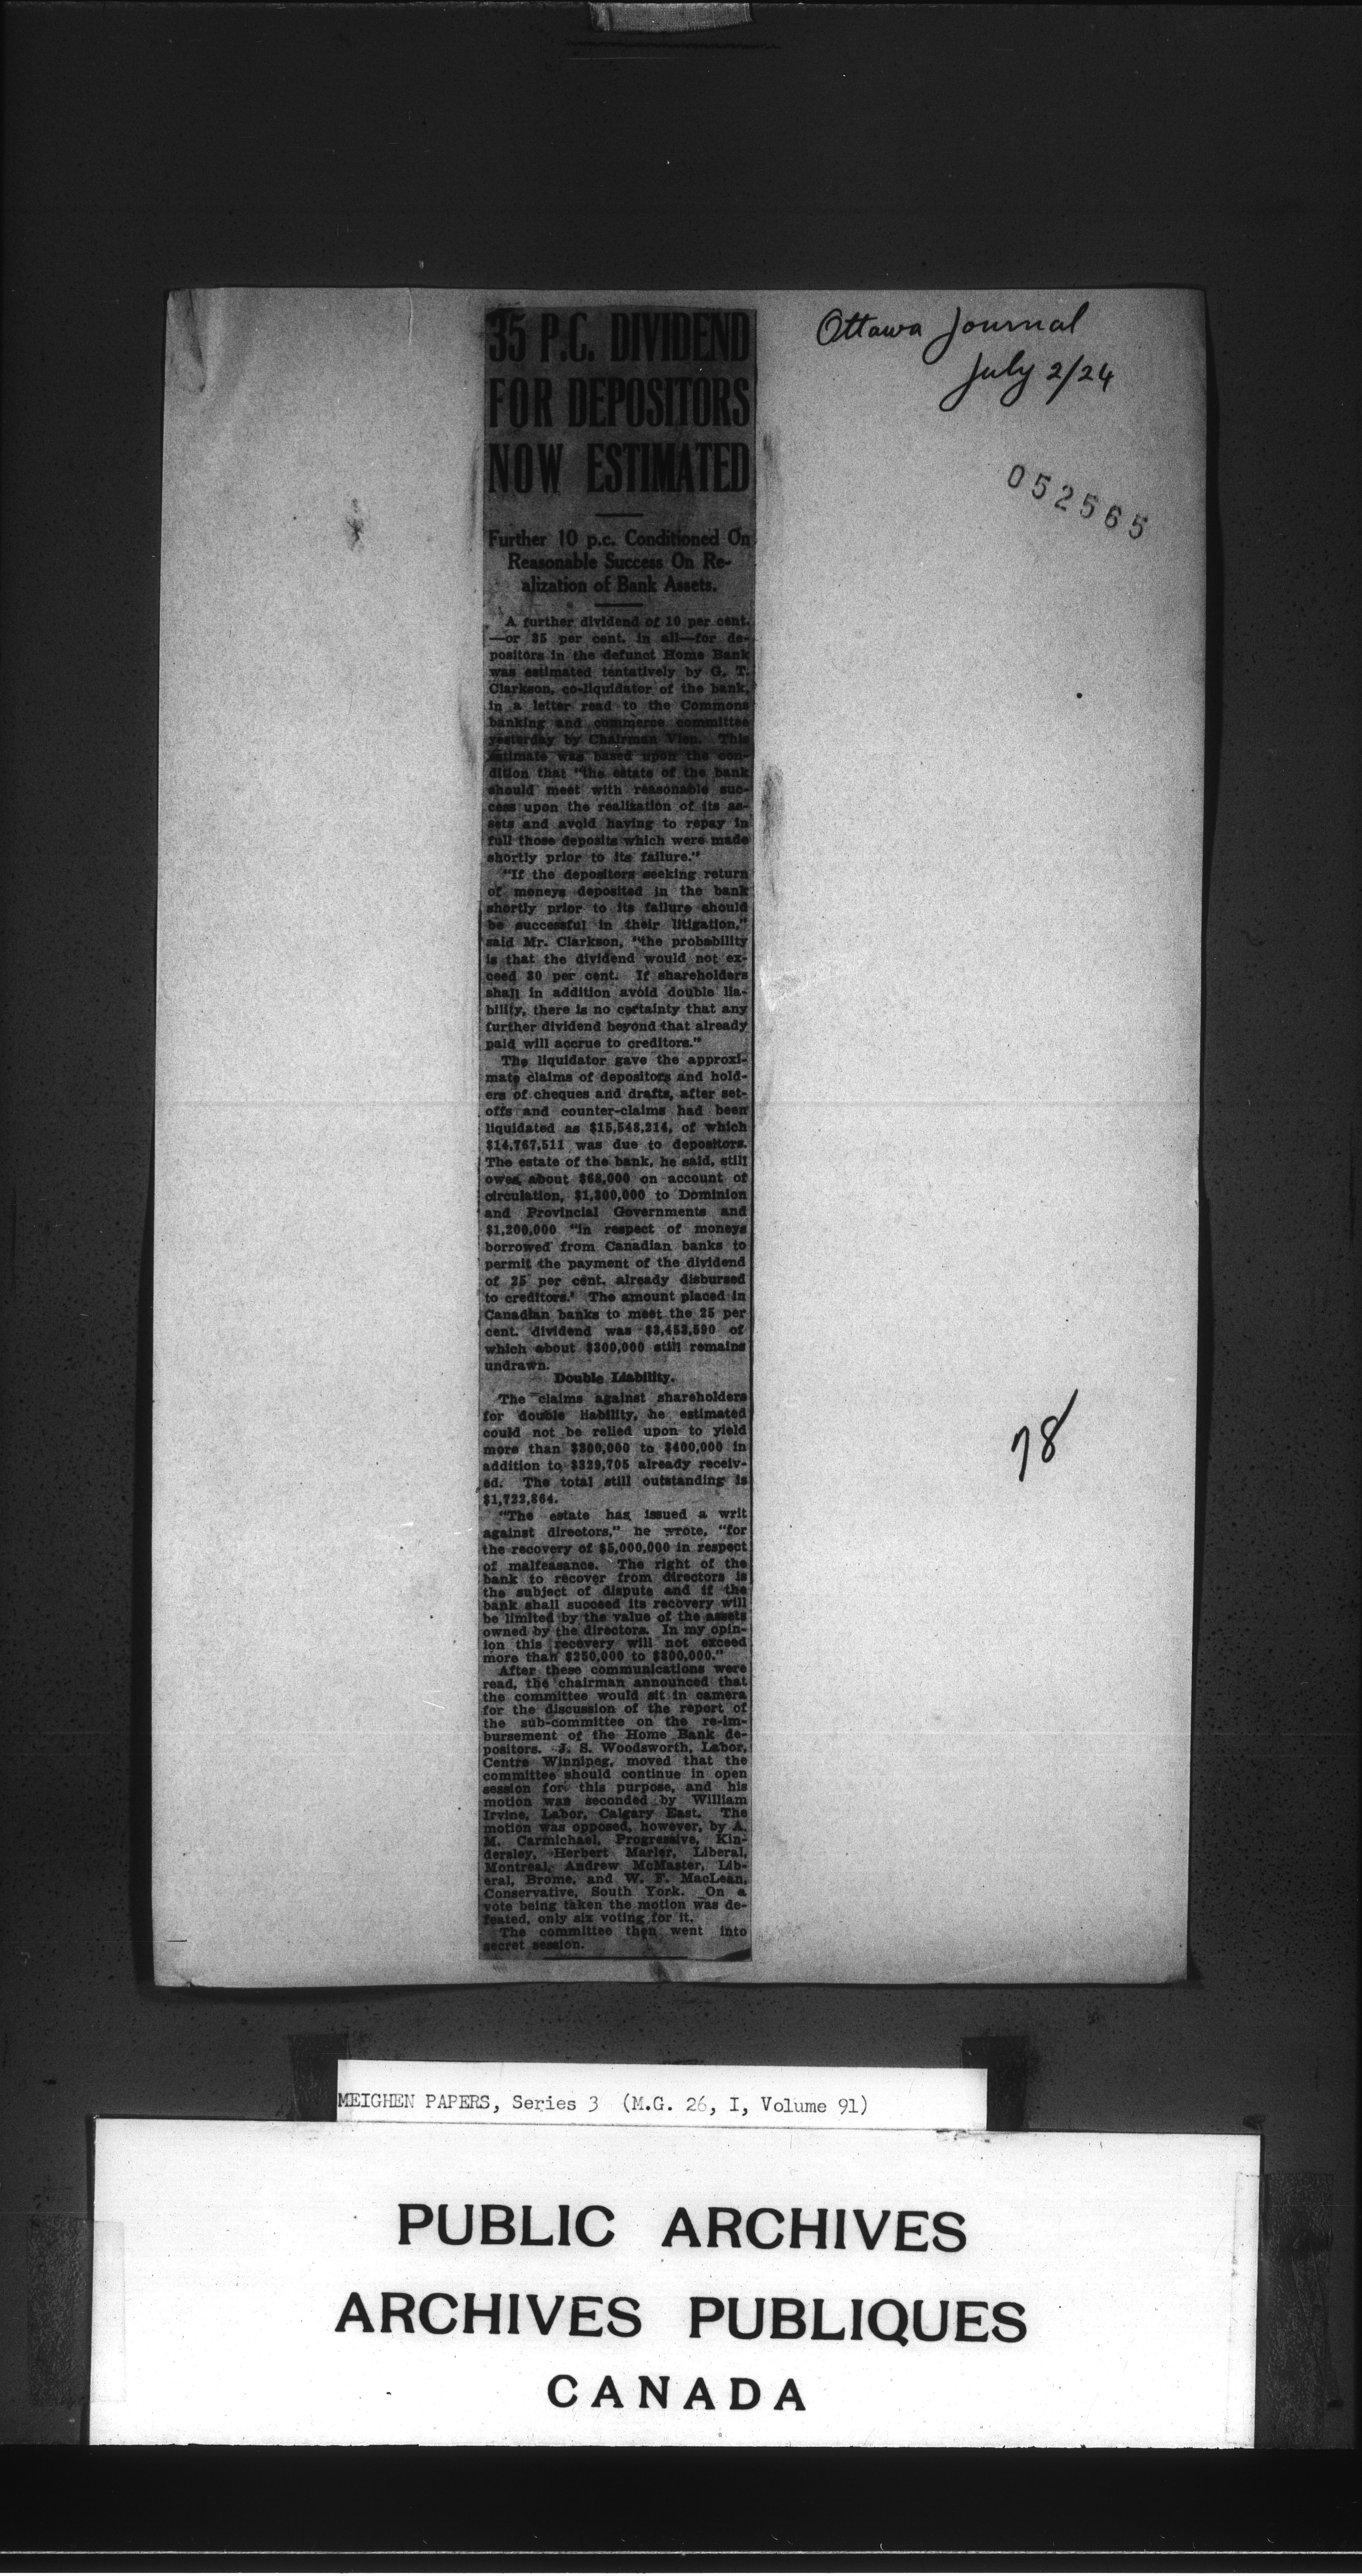 Ottawa Journal
July 2/24
052565
35 P.C. DIVIDEND
FOR DEPOSITORS
NOW ESTIMATED
Further 10 p.c. Conditioned On
Reasonable Success On Re-
alization of Bank Assets.
A further dividend of 10 per cent.
—or 35 per cent. in all—for de-
positors in the defunct Home Bank
was estimated tentatively by G. T.
Clarkson, co-liquidator of the bank,
in a letter read to the Commons
banking and commerce committee
yesterday by Chairman Vien. This
estimate was based upon the con-
dition that "the estate of the bank
should meet with reasonable suc-
cess upon the realization of its as-
sets and avoid having to repay in
full those deposits which were made
shortly prior to its failure."
"If the depositors seeking return
of moneys deposited in the bank
shortly prior to its failure should
be successful in their litigation,"
said Mr. Clarkson, "the probability
is that the dividend would not ex-
ceed 30 per cent. If shareholders
shall in addition avoid double lia-
bility, there is no certainty that any
further dividend beyond that already
paid will accrue to creditors."
The liquidator gave the approxi-
mate claims of depositors and hold-
ers of cheques and drafts, after set-
offs and counter-claims had been
liquidated as $15,548,214, of which
$14,767,511 was due to depositors.
The estate of the bank, he said, still
owes about $68,000 on account of
circulation, $1,300,000 to Dominion
and Provincial Governments and
$1,200,000 "in respect of moneys
borrowed from Canadian banks to
permit the payment of the dividend
of 25 per cent. already disbursed
to creditors.' The amount placed in
Canadian banks to meet the 25 per
cent. dividend was $3,453,590 of
which about $300,000 still remains
undrawn.
Double Liability.
The claims against shareholders
for double liability, he estimated
could not be relied upon to yield
more than $300,000 to $400,000 in
addition to $329,705 already receiv-
ed. The total still outstanding is
$1,722,864.
"The estate has issued a writ
against directors," he wrote, "for
the recovery of $5,000,000 in respect
of malfeasance. The right of the
bank to recover from directors is
the subject of dispute and if the
bank shall succeed its recovery will
be limited by the value of the assets
owned by the directors. In my opin-
ion this recovery will not exceed
more than $250,000 to $300,000."
After these communications were
read, the chairman announced that
the committee would sit in camera
for the discussion of the report of
the sub-committee on the re-im-
bursement of the Home Bank de-
positors. J. S. Woodsworth, Labor,
Centre Winnipeg, moved that the
committee should continue in open
session for this purpose, and his
motion was seconded by William
Irvine, Labor, Calgary East. The
motion was opposed, however, by A.
M. Carmichael, Progressive, Kin-
dersley, Herbert Marler, Liberal,
Montreal, Andrew McMaster, Lib-
eral, Brome, and W. F. MacLean,
Conservative, South York. On a
vote being taken the motion was de-
feated, only six voting for it.
The committee then went into
secret session.
78
MEIGHEN PAPERS, Series 3 (M.G. 26, I, Volume 91)
PUBLIC ARCHIVES
ARCHIVES PUBLIQUES
CANADA